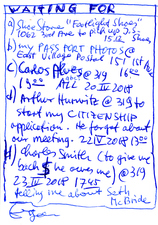 WAITING FOR
a) Shoe Store "Footlight Shoes"
1062 3rd Ave to pick up J.S.
Shoes
b) my PASSPORT PHOTOS @
East Village Postal 151 1st Ave
c) Carlos Alves @ 319 1600
1300 ALL 20 IV 2018
d) Arthur Hurwitz @ 319 to
start my CITIZENSHIP
application. He forgot about
our meeting. 22 IV 2018 1300
Charles Smith (to give me
back $ he owes me) @ 319
23 IV 2018 1745
telling me about Seth
McBride